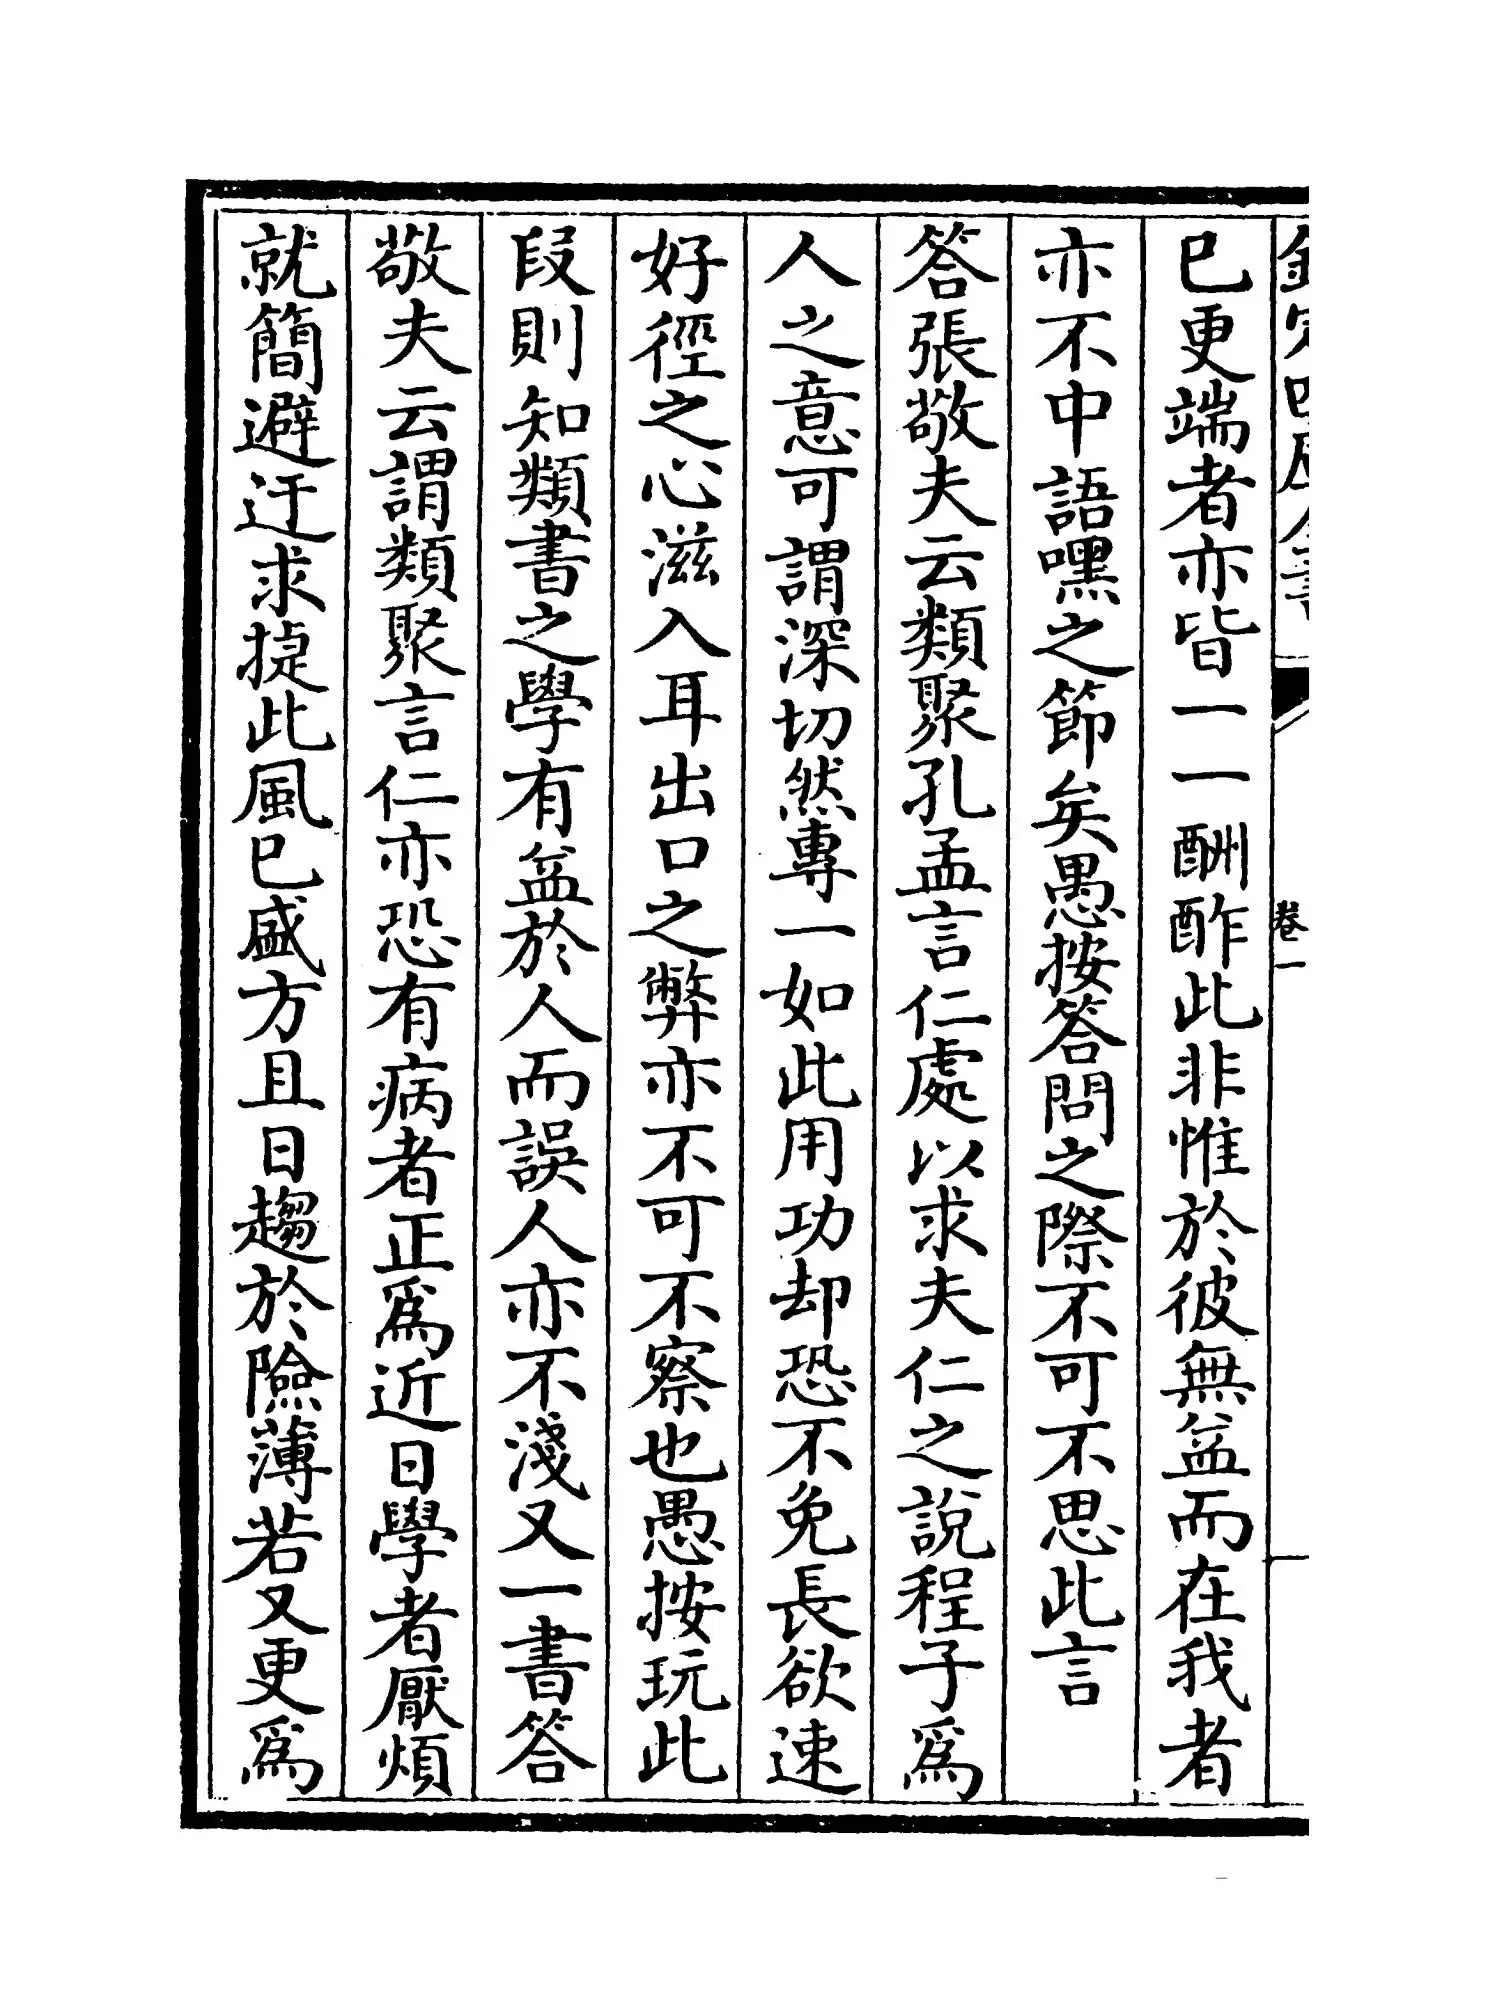 欽定四庫全書
卷一
已更端者亦皆一一酬酢此非惟於彼無益而在我者
亦不中語嘿之節矣愚按答問之際不可不思此言
答張敬夫云類聚孔孟言仁處以求夫仁之說程子為
人之意可謂深切然專一如此用功却恐不免長欲速
好徑之心滋入耳出口之弊亦不可不察也愚按玩此
段則知類書之學有益於人而誤人亦不淺又一書答
敬夫云謂類聚言仁亦恐有病者正為近日學者厭煩
就簡避迂求捷此風已盛方且日趨於險薄若又更為